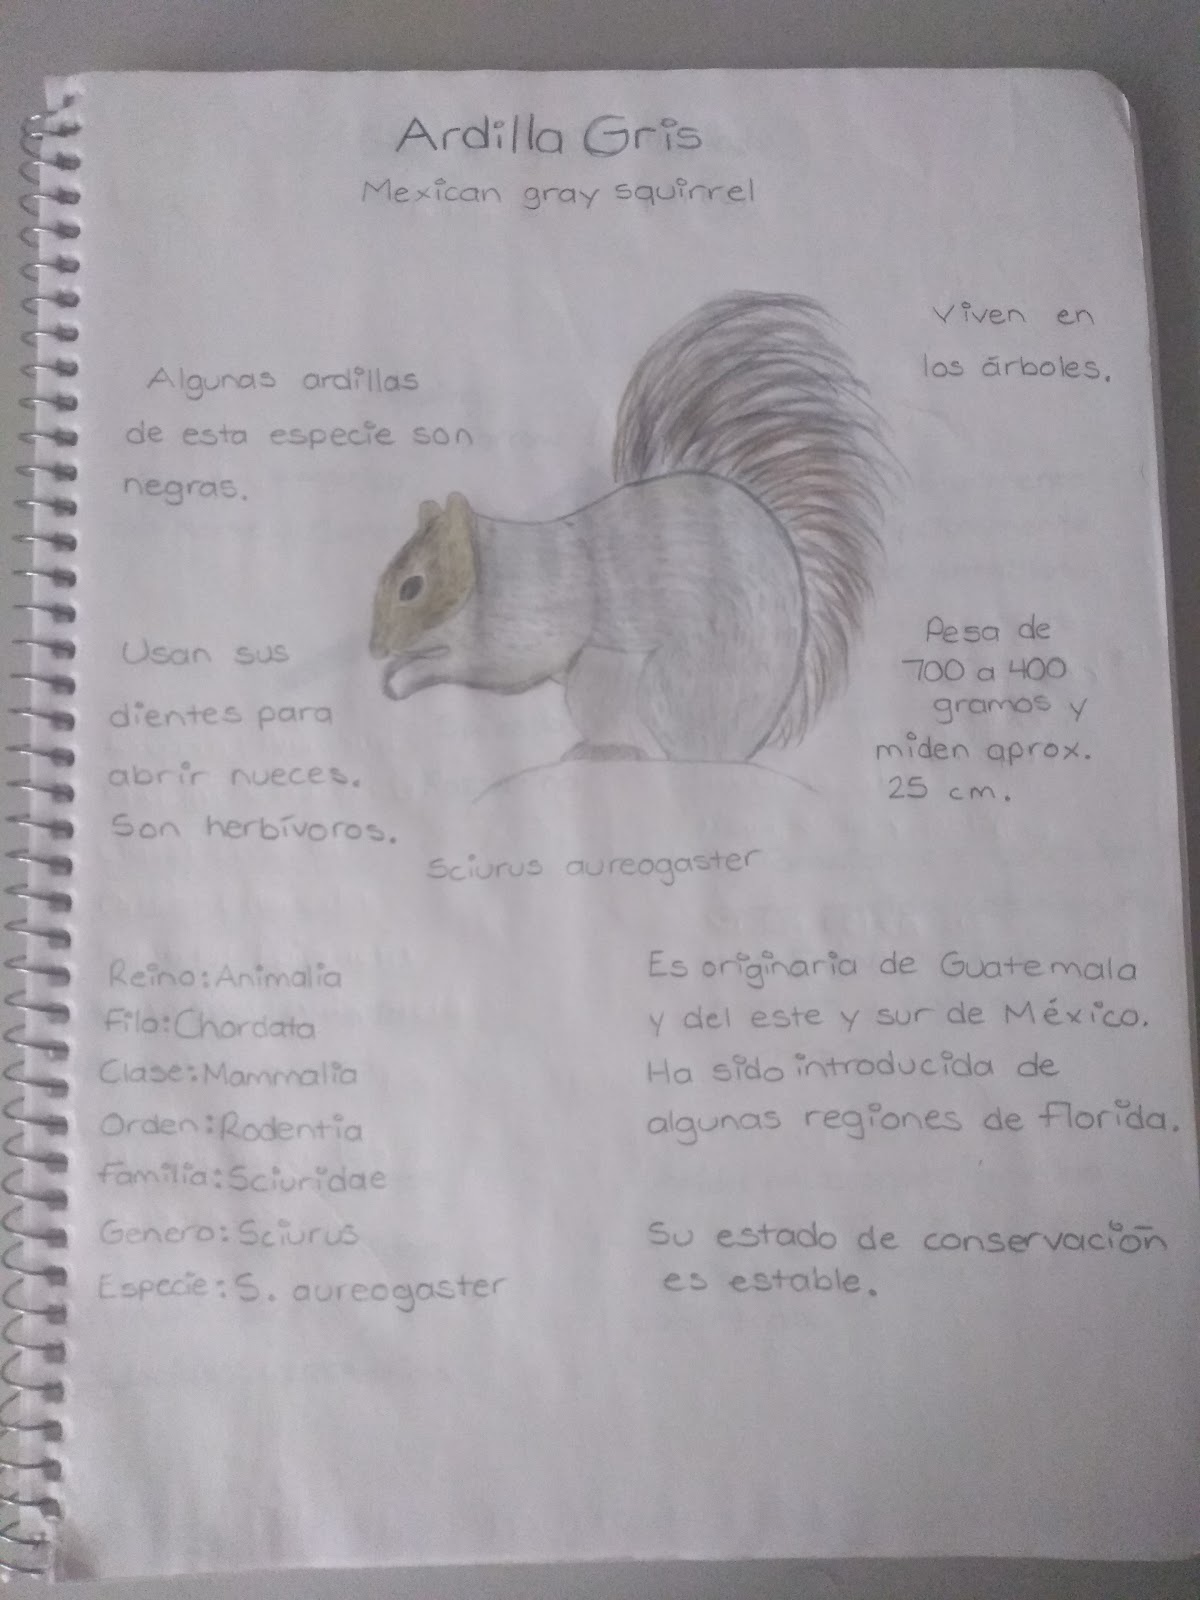 Ardilla Gris
Mexican gray squirrel
Viven en
los árboles.
Algunas ardillas
de esta especie son
negras.
Usan sus
dientes para
abrir nueces.
Son herbívoros.
Pesa de
700 a 400
gramos y
miden aprox.
25 cm.
Sciurus aureogaster
Reino:Animalia
Filo:Chordata
Clase:Mammalia
Orden:Rodentia
Familia:Sciuridae
Genero:Sciurus
Especie:S. aureogaster
Es originaria de Guatemala
y del este y sur de México.
Ha sido introducida de
algunas regiones de Florida.
Su estado de conservación
es estable.